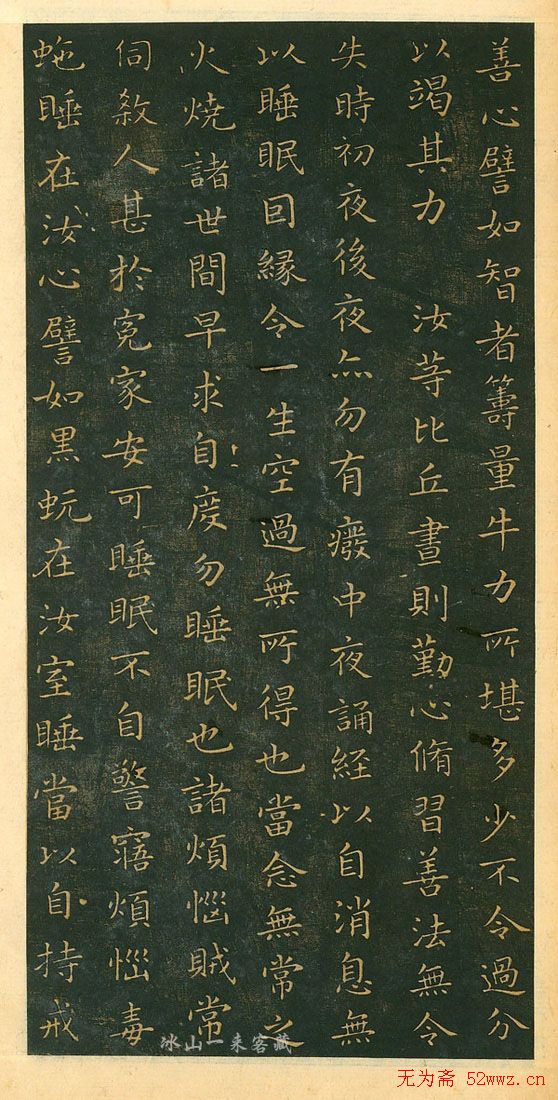 善心譬如智者籌量牛力所堪多少不令過分
以竭其力 汝等比丘晝則勤心脩習善法無令
失時初夜後夜亦勿有癈中夜誦經以自消息無
以睡眠因緣令一生空過無所得也當念無常之
火燒諸世間早求自度勿睡眠也諸煩惱賊常
伺殺人甚於冤家安可睡眠不自警寤煩惱毒
虵睡在汝心譬如黑蚖在汝室睡當以自持戒
冰山一来客藏
无为斋 52wwz.cn